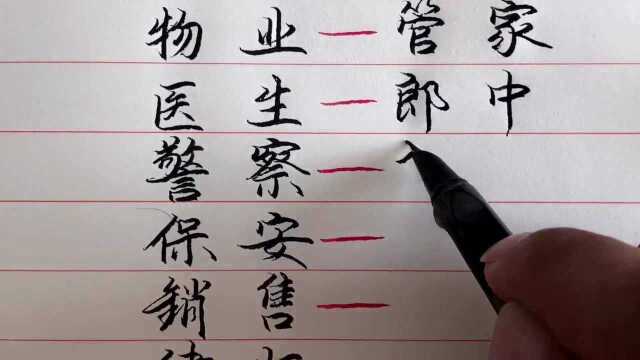 物业—管家
医生—郎中
警察—
保安—
銷售—